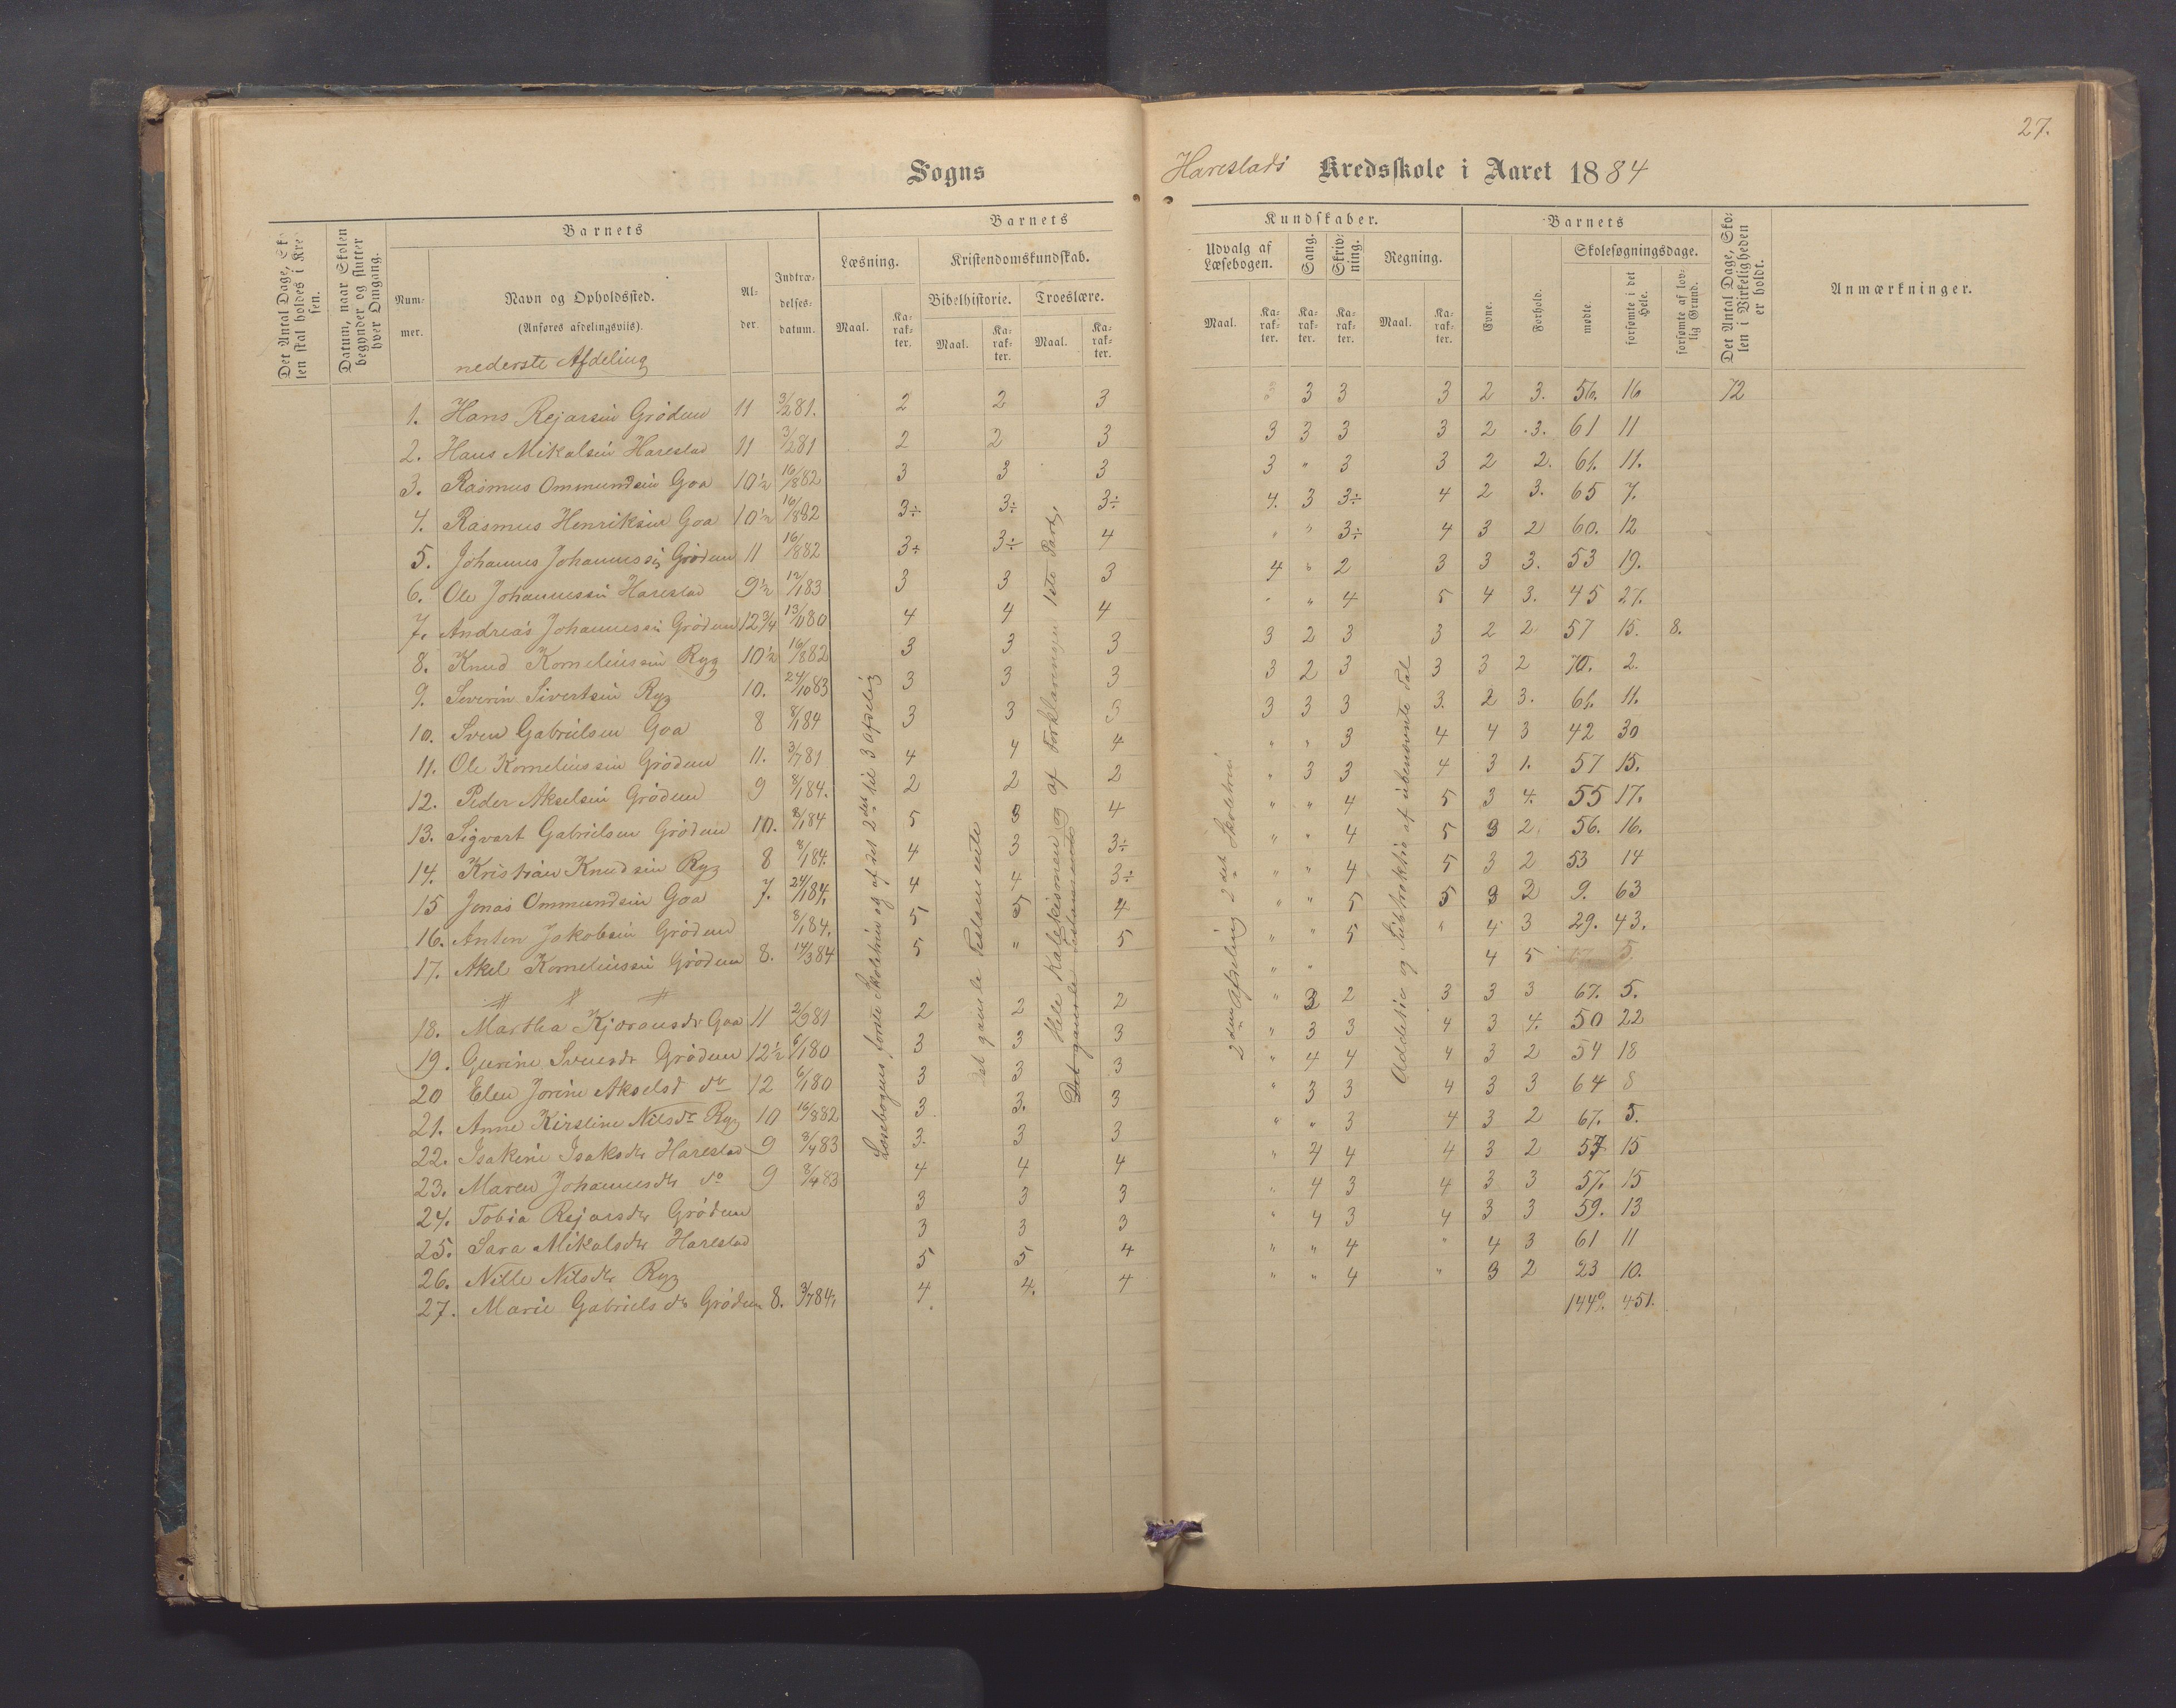 27.
Sogns Harestads Kredsskole i Aaret 1884
Det Antal Dage, Skolen skal holdes i Kredsen.
Datum, naar Skolen begynder og slutter hver Omgang.
Barnets
Nummer.
Navn og Opholdssted.
(Anføres afdelingsviis).
nederste Afdeling
Alder.
Indtrædelsesdatum.
Barnets Kundskaber.
Læsning.
Maal. Karakter.
Kristendomskundskab.
Bibelhistorie. Troeslære.
Maal. Karakter. Maal. Karakter.
Udvalg af Læsebogen.
Maal. Karakter.
Sang. Karakter.
Skrivning. Karakter.
Regning.
Maal. Karakter.
Barnets
Evne. Forhold.
Skolesøgningsdage.
mødte. forsømte i det Hele. forsømte af lovlig Grund.
Det Antal Dage, Skolen i Virkeligheden er holdt.
Anmærkninger.
1. Hans Rejarsen Grødem 11 3/281. 2 2 3 3 3 3 3 2 3. 56. 16 72
2. Hans Mikalsen Harestad 11 3/281 2 2 3 3 3 3 3 2 3. 61 11
3. Rasmus Ommundsen Goa 10½ 16/882 3 3 3 3 " 3 3 2 2. 61. 11.
4. Rasmus Henriksen Goa 10½ 16/882 3÷ 3÷ 3÷ 4. 3 3÷ 4 2 3. 65 7.
5. Johannes Johannessen Grødem 11 16/882 3÷ 3÷ 4 " " 3÷ 4 3 2 60. 12
6. Ole Johannessen Harestad 9½ 12/183 3 3 3 4 " 2 3 3 3. 53 19.
7. Andreas Johannessen Grødem 12¾ 13/080 4 4 4 " " 4 5 4 3. 45 27.
8. Knud Korneliussen Ryg 10½ 16/882 3 3 3 3 2 3 3 2 2 57 15. 8.
9. Severin Sivertsen Ryg 10. 24/1083 3 3 3 3 2 3 3 3 2 70. 2.
10. Sven Gabrielsen Goa 8 8/184 3 3 3 3 3 3 3. 2 3. 61. 11.
11. Ole Korneliussen Grødem 11. 3/781 4 4 4 " " 3 4 4 3 42 30
12. Peder Akselsen Grødem 9 8/184. 2 2 2 " 3 3 4 3 1. 57 15.
13. Sigvart Gabrielsen Grødem 10. 8/184 5 3 4 " " 4 5 3 4. 55 17.
14. Kristian Knudsen Ryg 8 8/184. 4 3 3÷ " " 4 5 3 2. 56. 16.
15 Jonas Ommundsen Goa 7. 24/184. 4 4 3÷ " " 4 5 3 2 53 14
16. Anton Jakobsen Grødem 8/184. 5 5 4 " " 5 5 3 2 9. 63
17. Aksel Korneliussen Grødem 8. 14/384 5 " 5 " " 5 " 4 3 29. 43.
" " 4 5
18. Martha Kjøransdr Goa 11 2/981 2 2 2 " 3 2 3 3 3 67. 5.
19. Gurine Svensdr Grødem 12½ 6/180 3 3 3 " 3 3 4 3 4. 50 22
20 Elen Jorine Akselsd do 12 6/180 3 3 3 " 4 4 4 3 2 54 18
21. Anne Kirstine Nilsdr Ryg 10 16/882 3 3. 3 " 3 3 4 3 3 64 8
22. Isakine Isaksdtr Harestad 9 8/483 3. 3 3 " " 3 4 3 2 67. 5.
23. Maren Johannesdtr do 9 8/483 4 4 4 " 4 4 4 3 2 57 15
24. Tobia Rejarsdtr Grødem 3 3 3 " 4 3 4 3 3 57. 15
25. Sara Mikalsdtr Harestad 3 3 3 " 4 3 4 3 3 59. 13
26. Nille Nilsdtr Ryg 5 5 4 " " 4 " 4 3 61 11
27. Marie Gabrielsdr Grødem 8. 3/784. 4. 4. 4 " " 4 " 3 2 23 10.
1440. 451.
Læsebogens første Skoletrin og af det 2det til 3 Afdeling
Det gamle Testamente
Hele Katekismen og af Forklaringen 1ste Part.
Det gamle Testamente
2den Afdeling 2det Skoletrin
Addetio og Subtraktio af ubenævnte Tal